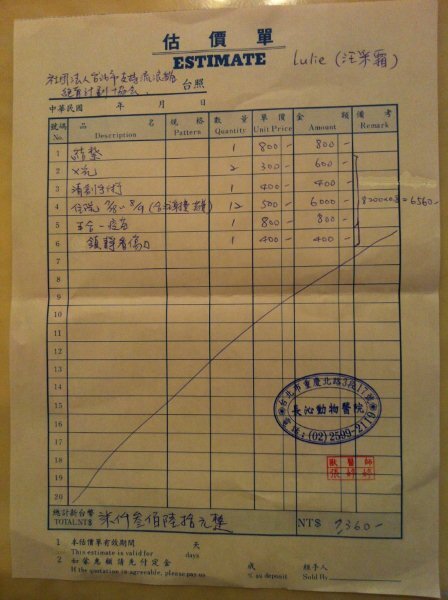 估價單
ESTIMATE
Lulie (汪采霜)
社團法人台北市支持流浪貓
絕育計劃協會. 台照
中華民國 年 月 日
號碼 品 名 規 格 數 量 單 價 金 額 備 考
No. Description Pattern Quantity Unit Price Amount Remark
1 結紮 1 800 - 800 -
2 X光 2 300 - 600 -
3 清創手術 1 400 - 400 -
4 住院 12 500 - 6000 - 8200×0.8=6560-
5 五合一疫苗 1 800 - 800 -
6 1 400 - 400 -
7
8
9
10
11
12
13
14
15
16
17
18
19
20
台北市重慶北路3段17號
長沁動物醫院
電話:(02)2599-2119
獸醫師
總計新台幣
TOTAL NT$ 柒仟叁佰陸拾元整 NT$ 7360-
1 本估價單有效期間 天
This estimate is valid for days
2 如蒙惠顧請先付定金 成 經手人
If the quotation is agreeable, please pay us % as deposit Sold By